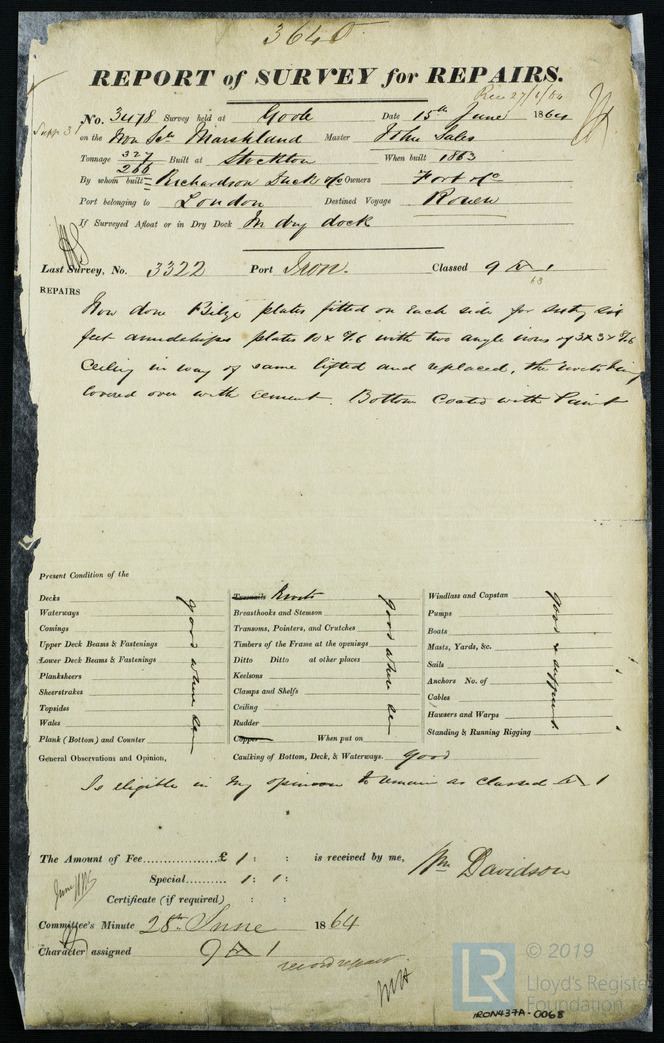 3640
REPORT of SURVEY for REPAIRS.
Rec 27/6/64
No. 3478 Survey held at Goole Date 15th June 1864
Supp 31
on the Iron Scr Marshland Master John Sales
Tonnage 327 Built at Stockton When built 1863
266
By whom built Richardson Duck & Co Owners Fort & Co
Port belonging to London Destined Voyage Rouen
If Surveyed Afloat or in Dry Dock In dry dock
Last Survey, No. 3322 Port Iron. Classed 9 A 1
63
REPAIRS
Now done Bilge plates fitted on each side for sixty six
feet amidships plates 10 x 9/16 with two angle irons of 3 x 3 x 6/16
Ceiling in way of same lifted and replaced, the rivets being
covered over with cement. Bottom Coated with Paint
Present Condition of the
Decks
Waterways
Comings
Upper Deck Beams & Fastenings
Lower Deck Beams & Fastenings
Planksheers
Sheerstrakes
Topsides
Wales
Plank (Bottom) and Counter
good where seen
Treenails Rivets
Breasthooks and Stemson
Transoms, Pointers, and Crutches
Timbers of the Frame at the openings
Ditto Ditto at other places
Keelsons
Clamps and Shelfs
Ceiling
Rudder
Copper When put on
good where seen
Windlass and Capstan
Pumps
Boats
Masts, Yards, &c.
Sails
Anchors No. of
Cables
Hawsers and Warps
Standing & Running Rigging
good & sufficient
General Observations and Opinion, Caulking of Bottom, Deck, & Waterways. good
Is eligible in my opinion to remain as Classed A 1
The Amount of Fee............... £ 1 : : is received by me, Wm Davidson
Special......... 1 : 1 :
Certificate (if required) : :
Committee's Minute 28th June 1864
Character assigned 9 A 1
record repairs
© 2019
LR Lloyd's Register
Foundation
IRON437A-0068